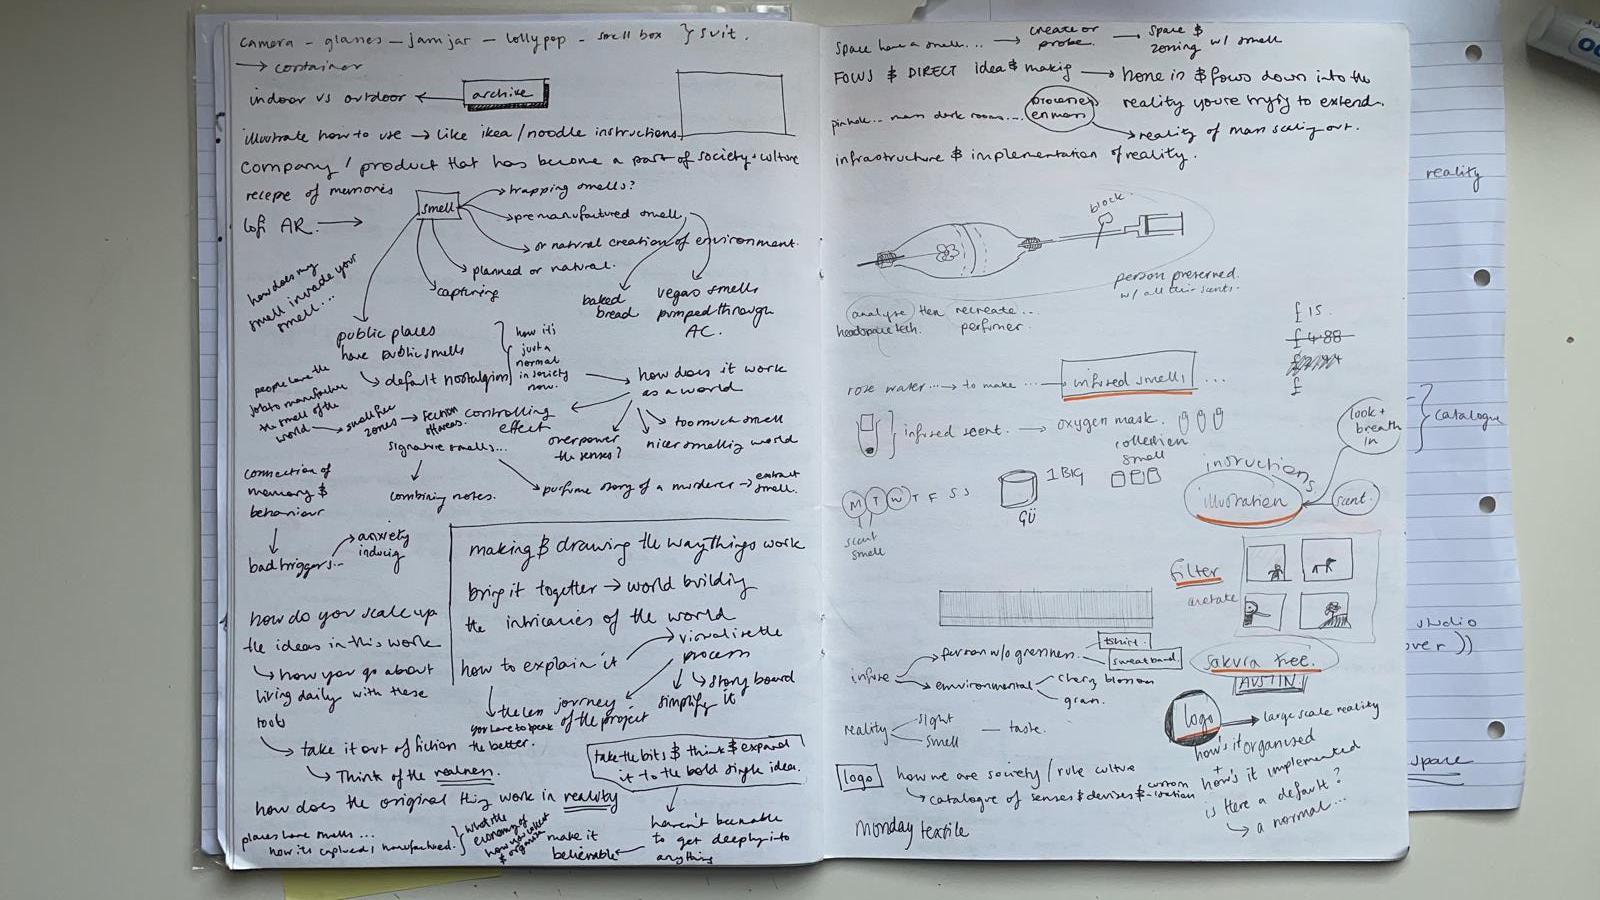 camera - glasses - jam jar - lollypop - smell box } suit.
→ container
indoor vs outdoor ← archive
illustrate how to use → like ikea/noodle instructions.
company / product that has become a part of society + culture
recepe of memories
lofi AR. →
smell
trapping smells?
premanufactured smell
or natural creation of environment.
planned or natural.
capturing
how does my
smell invade your
smell...
baked
bread
vegas smells
pumped through
AC.
public places
have public smells
→ default nostalgion
how it's
just a
normal
in society
now.
how does it work
as a world
people have the
job to manufacture
the smell of the
world → smell free
zones → section
off areas.
controlling
effect
overpower
the senses?
too much smell
nicer smelling world
signature smells...
combining notes.
purfume story of a murderer → extract
smell.
connection of
memory &
behaviour
bad triggers...
anxiety
inducing
making & drawing the way things work
bring it together → world building
the intricacies of the world
how to explain it
visualise the
process
story board
simplify it
journey
of the project
the less
you have to speak
the better.
how do you scale up
the ideas in this work
↳ how you go about
living daily with these
tools
→ take it out of fiction
↳ Think of the realness.
take the bits & think & expand
it to the bold single idea.
how does the original thing work in reality
places have smells...
how its captured, manufactured.
what's the
economy of
how you collect
& organise
make it
believable
haven't been able
to get deeply into
anything
Space have a smell... → create or
probe. → space &
zoning w/ smell
FOCUS & DIRECT idea & making → hone in & focus down into the
reality you're trying to extend.
pinhole... mass dark rooms... processes
en mass
→ reality of mass scaling out.
infrastructure & implementation of reality.
block.
person preserved.
w/ all their scents.
analyse then recreate...
headspace tech. perfumer.
£15.
£4.88
£
rose water... → to make ... → infused smells ...
infused scent. → oxygen mask.
collection
smell
look +
breath
in
1 BIG
GÜ
M T W T F S S
scent
smell
instructions
illustration
scent.
Filter
acetate
infuse
person w/o greasiness.
tshirt.
sweatband
environmental
cherry blossom
grass.
sakura tree.
AUSTIN
reality
sight
smell
— taste.
logo → large scale reality
how's it organised
+
how's it implemented
is there a default?
↳ a normal...
logo
how we are society / rule culture
↳ catalogue of senses & devises & custom
-isation
monday textile
reality
catalogue
studio
over ))
space